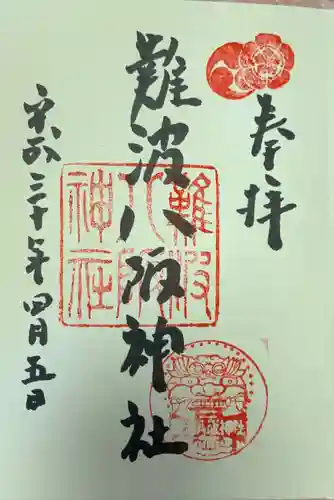 奉拝
難波八阪神社
平成三十年四月五日
難波
八阪
神社